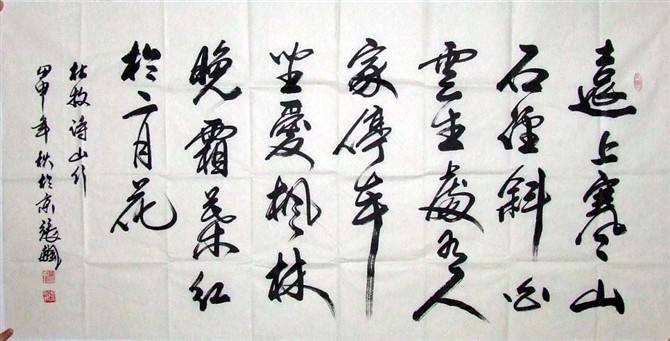 遠上寒山
石徑斜白
雲生處有人
家停車
坐愛楓林
晚霜葉紅
於二月花
杜牧詩山行
甲申年秋於京張